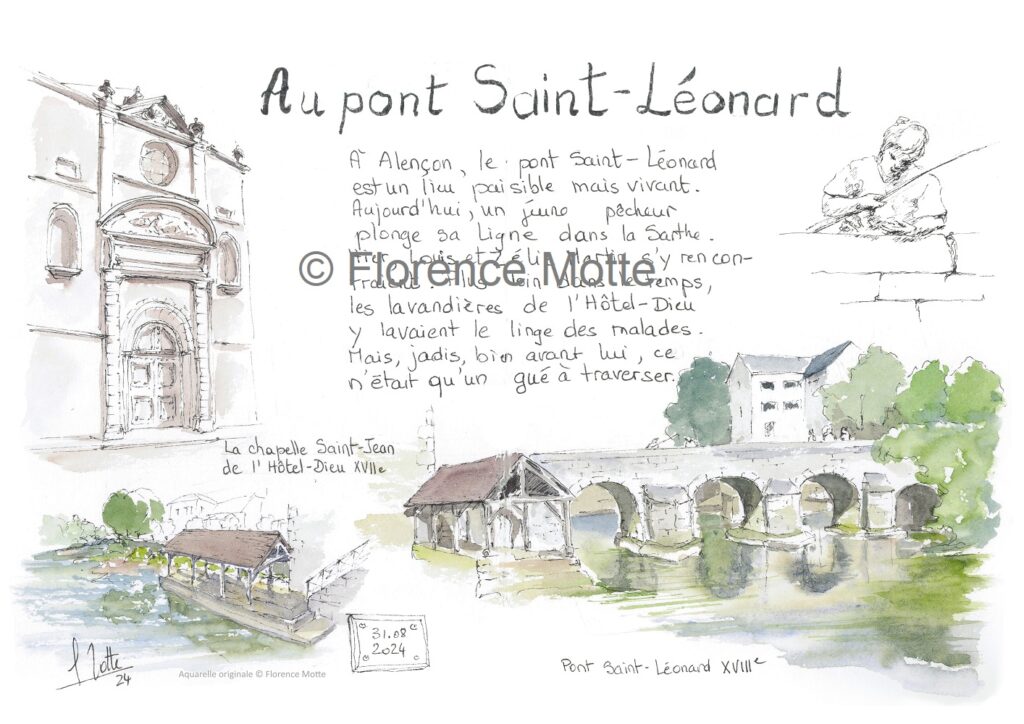 Au pont Saint-Léonard
À Alençon, le pont Saint-Léonard
est un lieu paisible mais vivant.
Aujourd'hui, un jeune pêcheur
plonge sa ligne dans la Sarthe.
Hier, Louis et Zélie Martin s'y rencon-
traient. Plus loin dans le temps,
© Florence Motte
les lavandières de l'Hôtel-Dieu
y lavaient le linge des malades.
Mais, jadis, bien avant lui, ce
n'était qu'un gué à traverser.
La chapelle Saint-Jean
de l'Hôtel-Dieu XVIIe
31.08
2024
Pont Saint-Léonard XVIIIe
F Motte
24
Aquarelle originale © Florence Motte